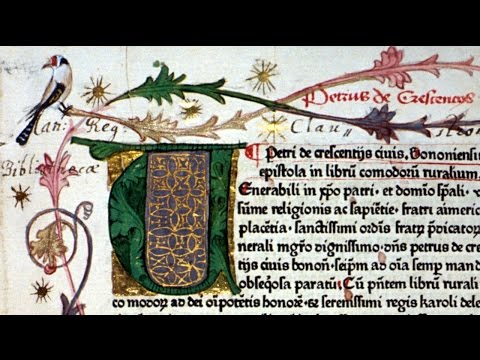 Petrus de Crescencos
Can: Reg: Clau
Bibliothecae
Petri de crescentijs ciuis, Bononiensi
epistola in librū comodorū ruralium
Enerabili in xp̄o patri, et domīo sp̄ali,
sūme religionis ac sapiētie, fratri aimeric
placētia, sanctissimi ordīs fratꝝ p̄dicator
nerali mgr̄o dignissimo, dn̄s petrus de cre
tijs ciuis bonoń, seip̄m ad oīa semp mand
obseq̄osa paratū, Cū p̄ntem librū rurali
co modoꝝ ad dei oīpotētis honorē, & serenissimi regis karoli dele